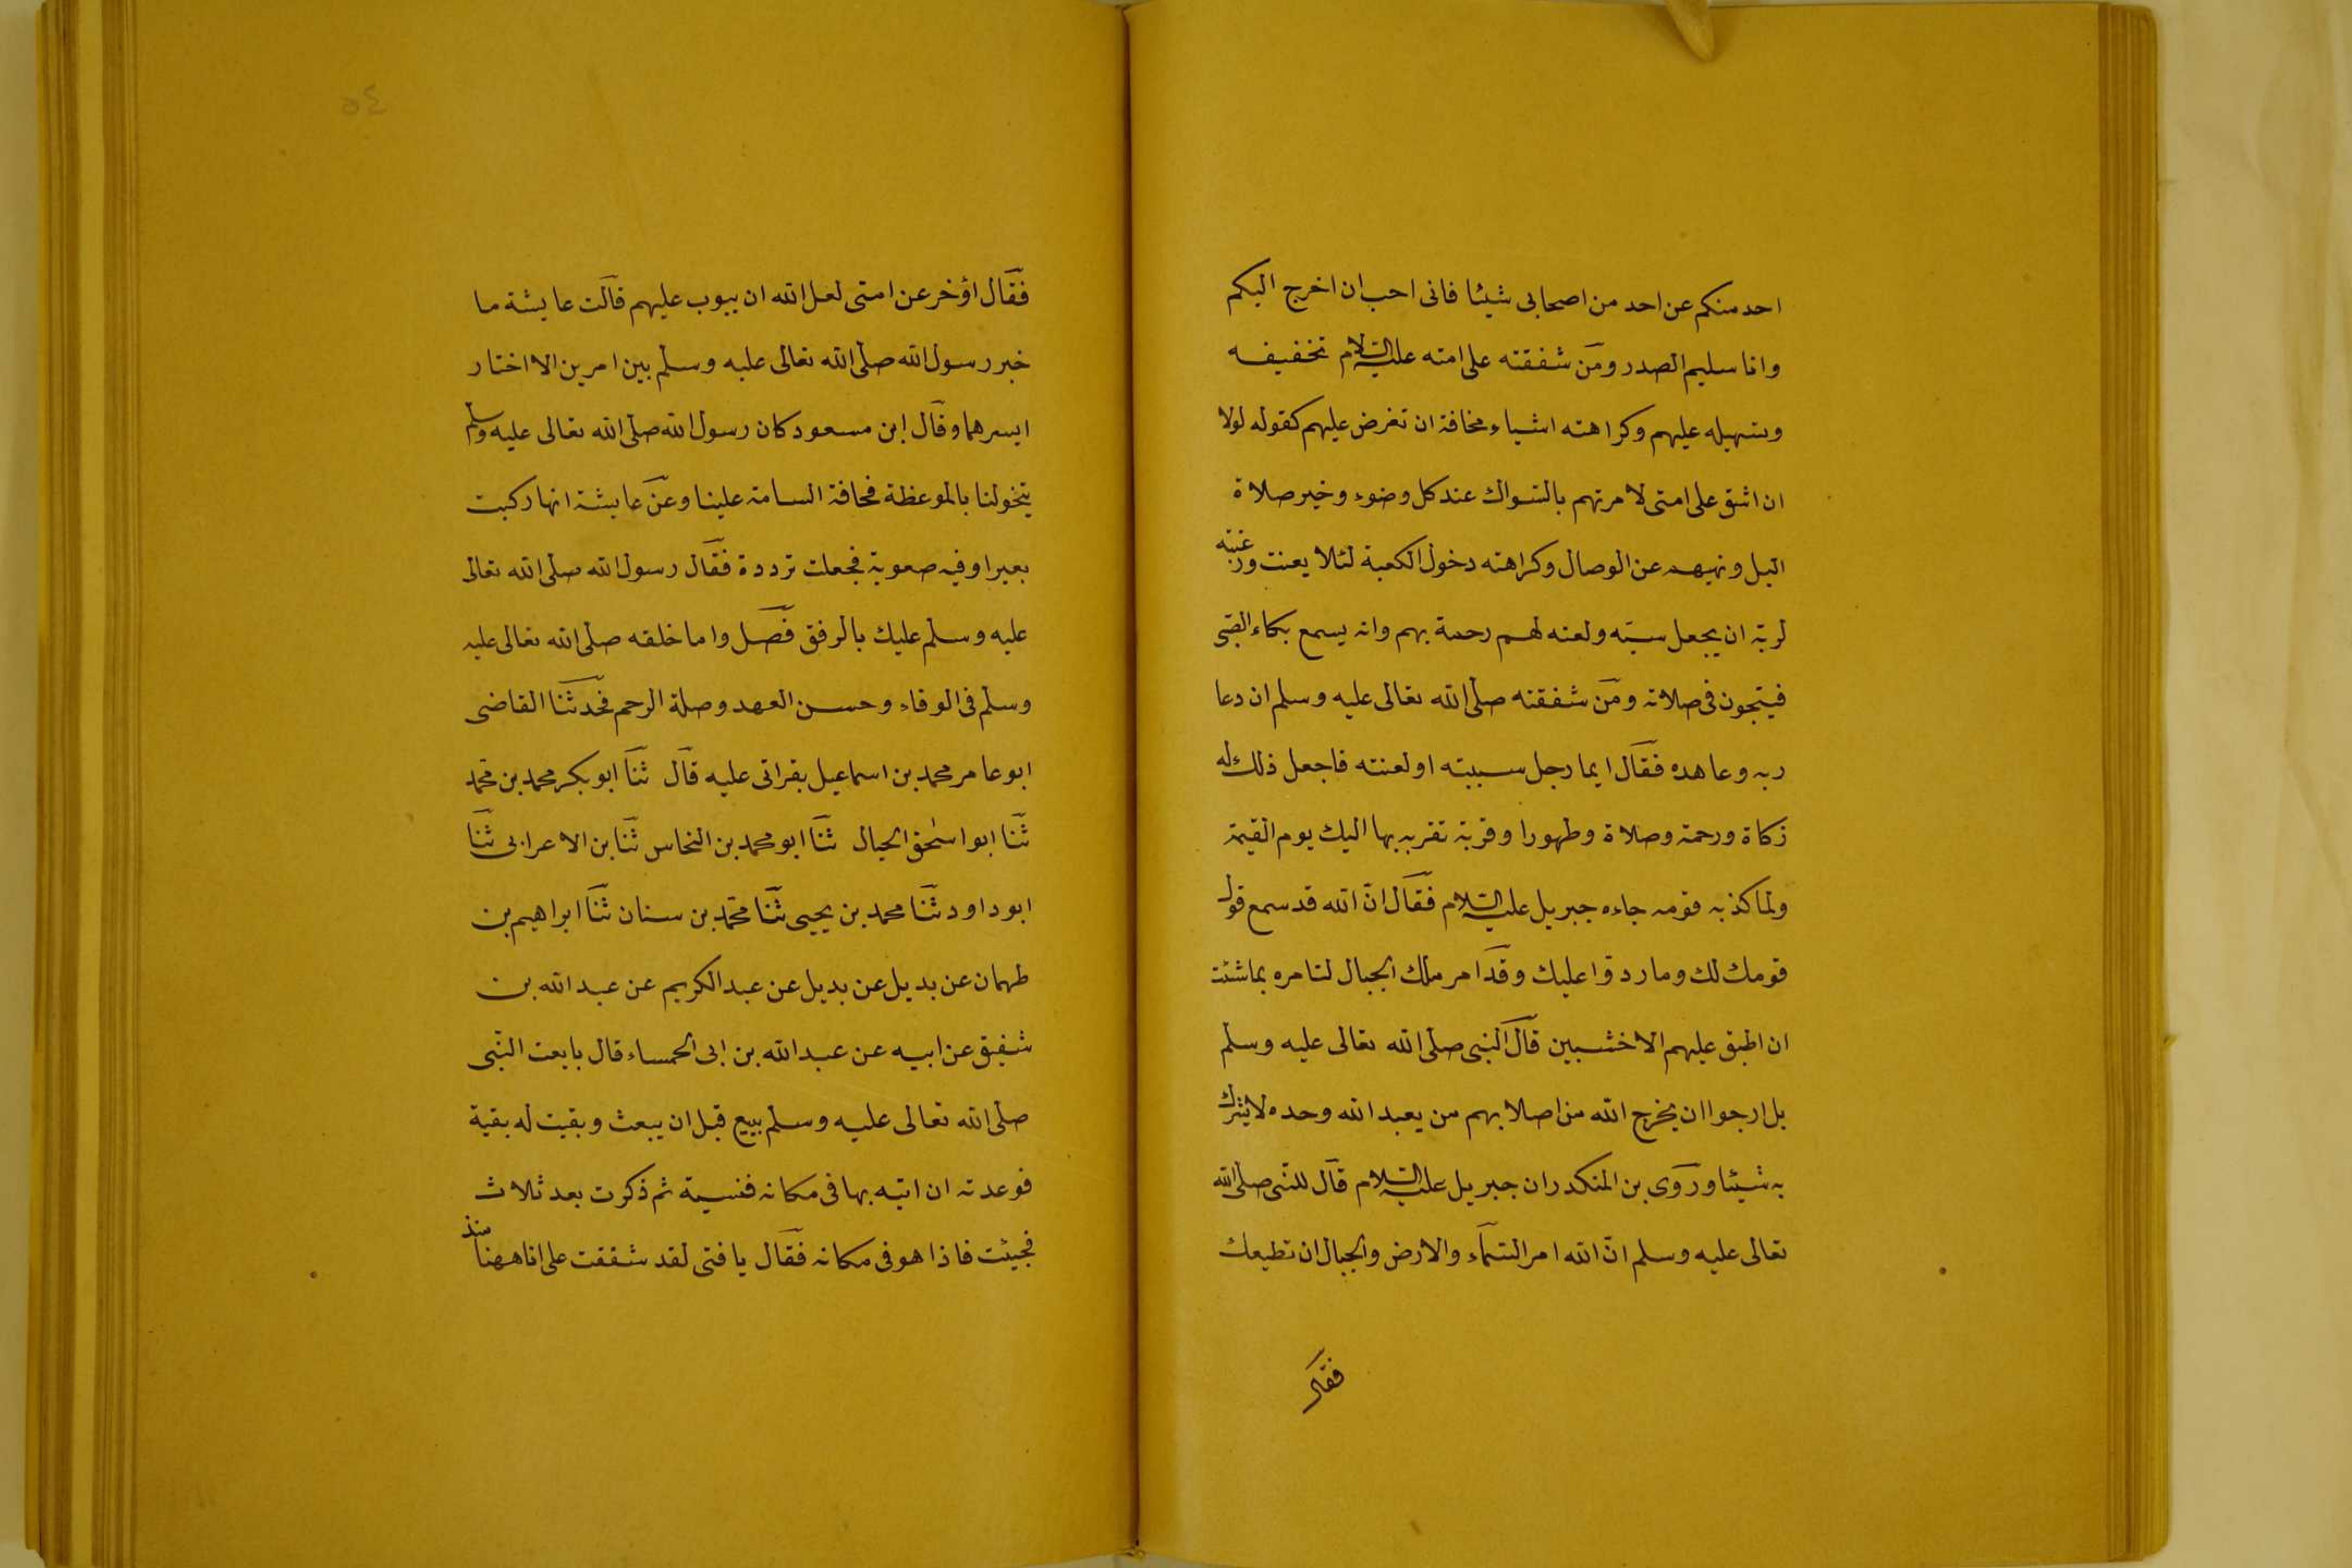 احد منكم عن احد من اصحابى شيئا فانى احب ان اخرج اليكم
وانا سليم الصدر ومن شفقته على امته عليه السلام تخفيفه
وتسهيله عليهم وكراهته اشياء مخافة ان تفرض عليهم كقوله لولا
ان اشق على امتى لامرتهم بالسواك عند كل وضوء وخبر صلاة
الليل ونهيهم عن الوصال وكراهته دخول الكعبة لئلا يعنت ورغبته
لربه ان يجعل سبه ولعنه لهم رحمة بهم وانه يسمع بكاء الصبى
فيتجون فى صلاته ومن شفقته صلى الله تعالى عليه وسلم ان دعا
ربه وعاهده فقال ايما رجل سببته او لعنته فاجعل ذلك له
زكاة ورحمة وصلاة وطهورا وقربة تقربه بها اليك يوم القيمة
ولما كذبه قومه جاءه جبريل عليه السلام فقال ان الله قد سمع قول
قومك لك وما ردوا عليك وقد امر ملك الجبال لتامره بما شئت
ان اطبق عليهم الاخشبين قال النبى صلى الله تعالى عليه وسلم
بل ارجوا ان يخرج الله من اصلابهم من يعبد الله وحده لا يشرك
به شيئا وروى بن المنكدر ان جبريل عليه السلام قال للنبى صلى الله
تعالى عليه وسلم ان الله امر السماء والارض والجبال ان تطيعك
فقال
٥٤
فقال اؤخر عن امتى لعل الله ان يبوب عليهم قالت عايشة ما
خبر رسول الله صلى الله تعالى عليه وسلم بين امرين الا اختار
ايسرهما وقال إبن مسعود كان رسول الله صلى الله تعالى عليه وسلم
يتخولنا بالموعظة مخافة السامة علينا وعن عايشة انها ركبت
بعيرا وفيه صعوبة فجعلت ترددة فقال رسول الله صلى الله تعالى
عليه وسلم عليك بالرفق فصل واما خلقه صلى الله تعالى عليه
وسلم فى الوفاء وحسن العهد وصلة الرحم فحدثنا القاضى
ابو عامر محمد بن اسماعيل بقراتى عليه قال ثنا ابو بكر محمد بن محمد
ثنا ابو اسحق الحبال ثنا ابو محمد بن النحاس ثنا بن الاعرابى ثنا
ابو داود ثنا محمد بن يحيى ثنا محمد بن سنان ثنا ابراهيم بن
طهمان عن بديل عن بديل عن عبد الكريم عن عبد الله بن
شفيق عن ابيه عن عبد الله بن ابى الحمساء قال بايعت النبى
صلى الله تعالى عليه وسلم ببيع قبل ان يبعث وبقيت له بقية
فوعدته ان اتيه بها فى مكانه فنسية ثم ذكرت بعد ثلاث
فجيئت فاذا هو فى مكانه فقال يا فتى لقد شققت على انا ههنا منذ